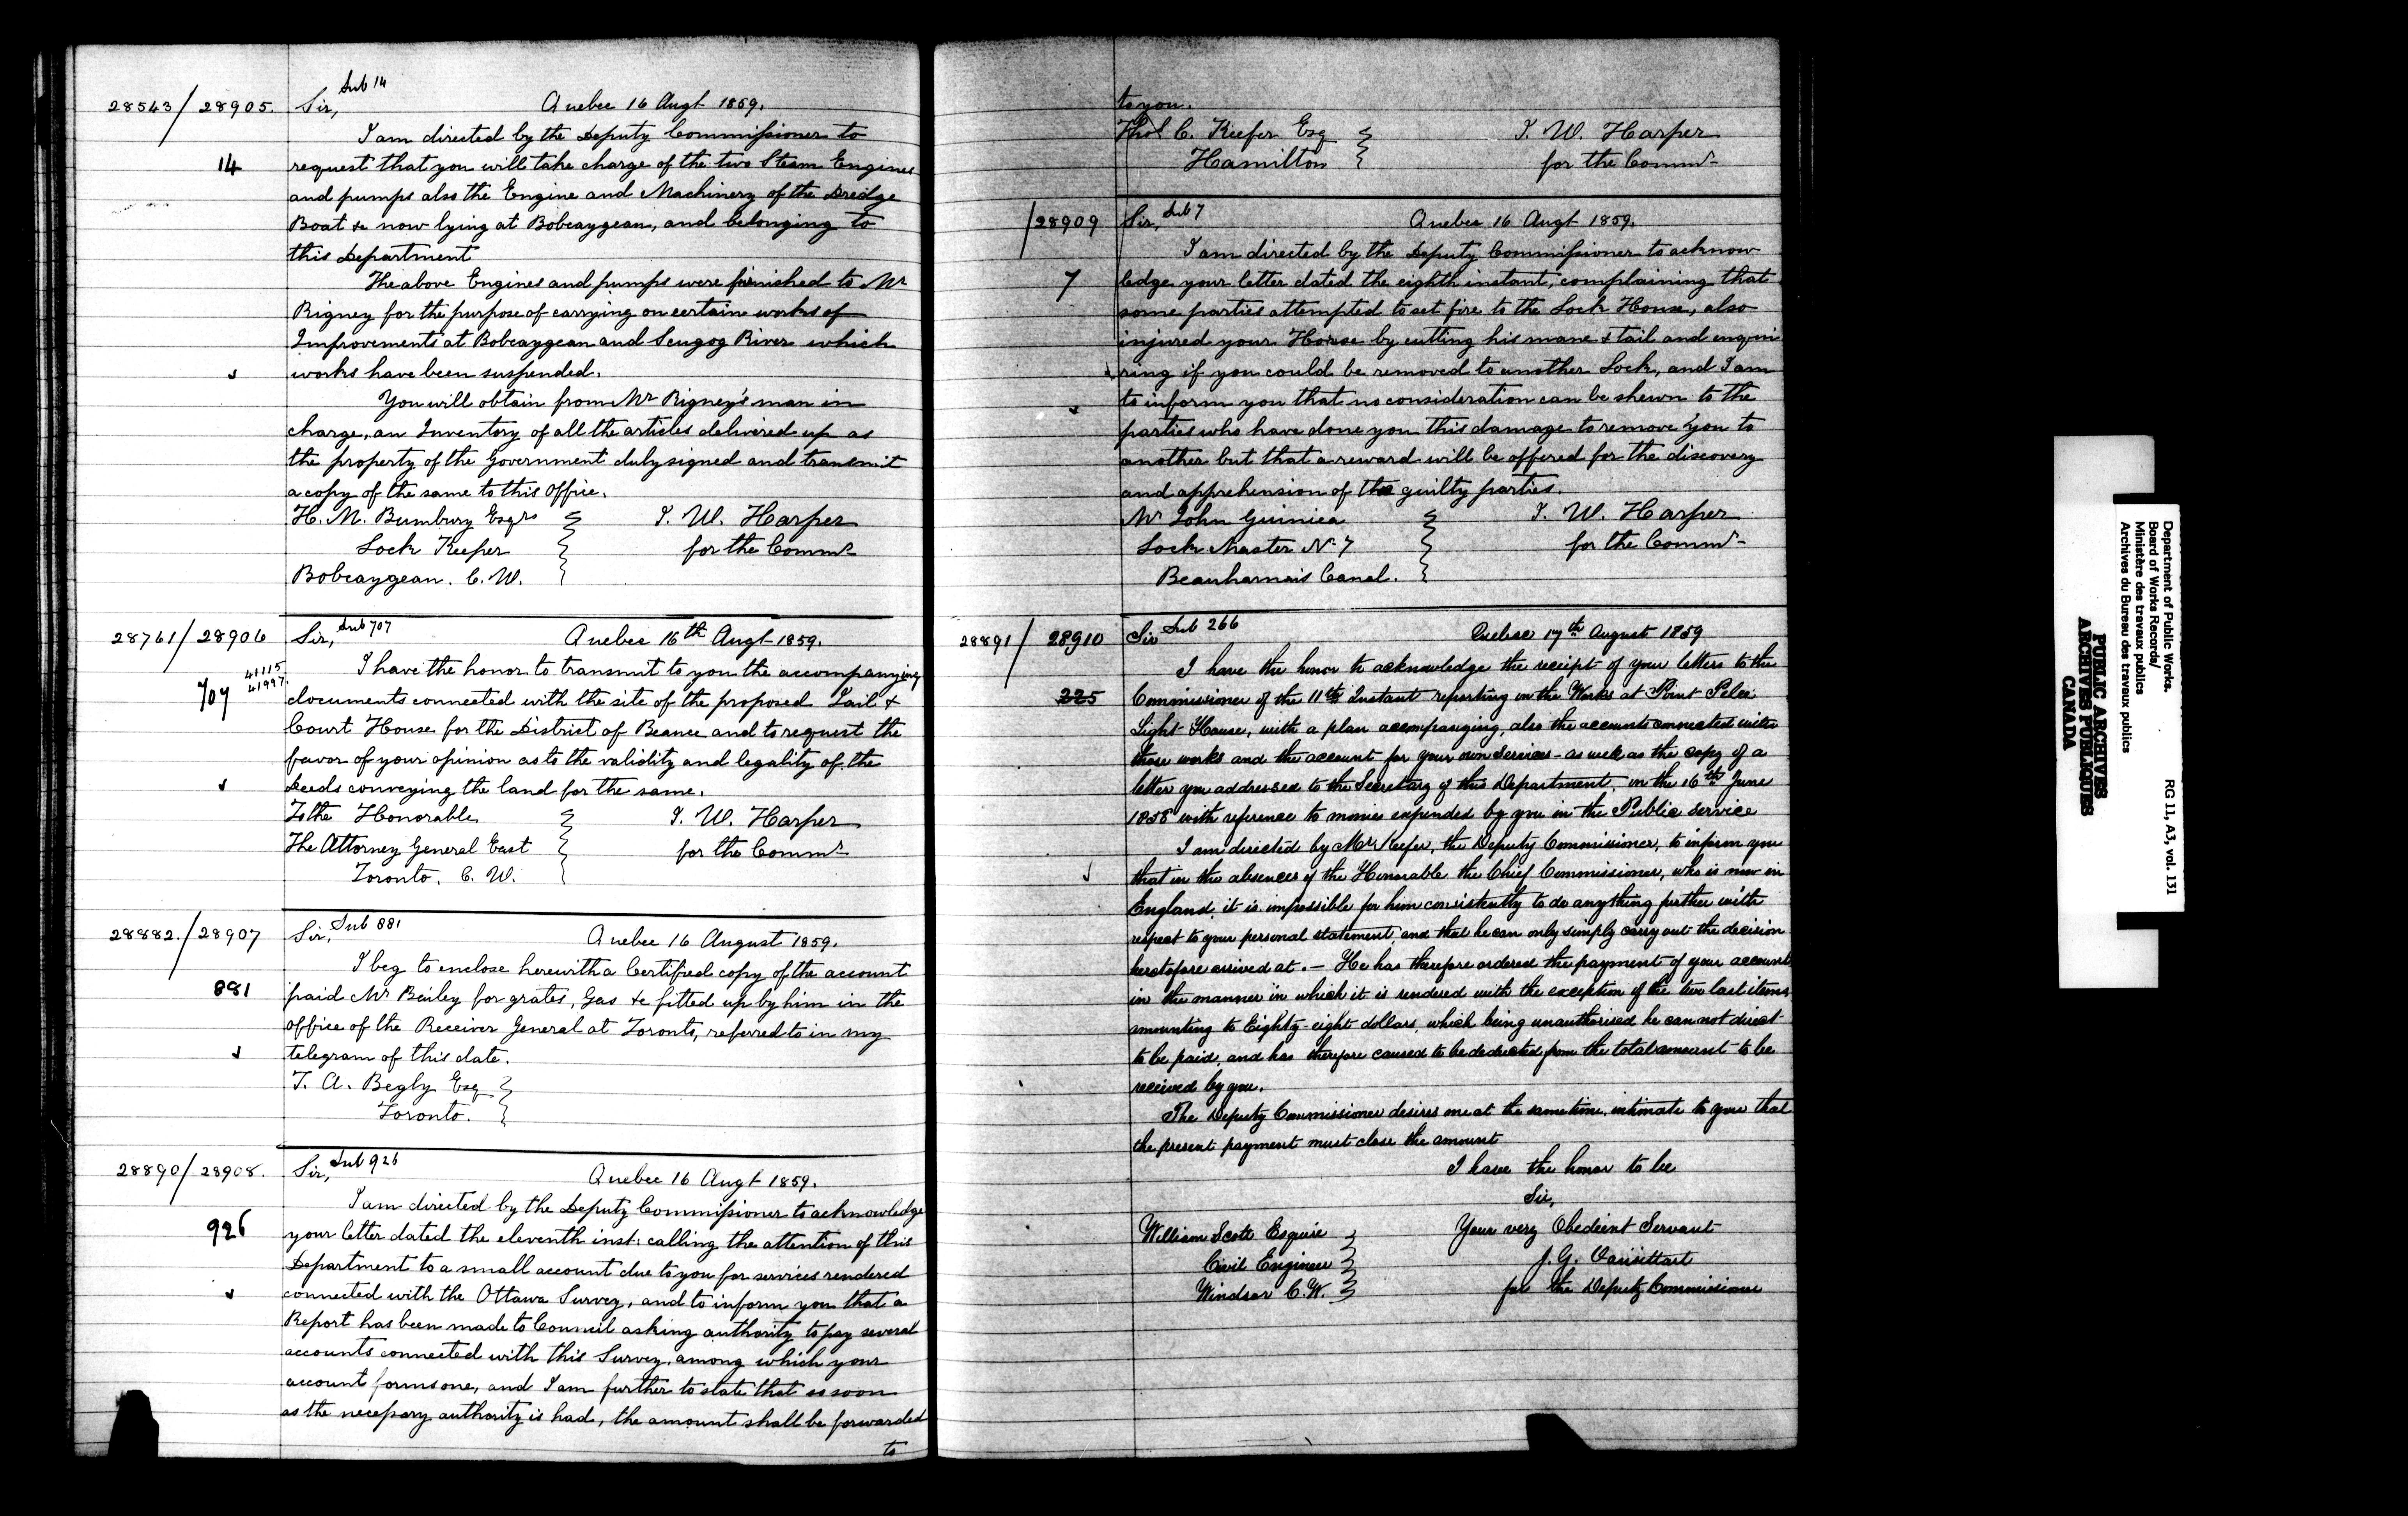 28543/28905. Sir, Sub 14 Quebec 16 Augt 1859.
I am directed by the Deputy Commissioner to
14 request that you will take charge of the two Steam Engines
and pumps also the Engine and Machinery of the Dredge
Boat &c now lying at Bobcaygean, and belonging to
this Department
The above Engines and pumps were furnished to Mr
Rigney for the purpose of carrying on certain works of
Improvements at Bobcaygean and Scugog River which
works have been suspended.
You will obtain from Mr Rigney's man in
charge, an Inventory of all the articles delivered up as
the property of the Government duly signed and transmit
a copy of the same to this Office.
H. M. Bumbury Esqrs T. W. Harper
Lock Keeper for the Commr
Bobcaygean. C. W.
28761/28906 Sir, Sub 707 Quebec 16th Augt 1859.
41115
41997
I have the honor to transmit to you the accompanying
707 documents connected with the site of the proposed Jail &
Court House for the District of Beauce and to request the
favor of your opinion as to the validity and legality of the
Deeds conveying the land for the same.
To the Honorable T. W. Harper
The Attorney General East for the Commr
Toronto. C. W.
28882./28907 Sir, Sub 881 Quebec 16 August 1859.
I beg to enclose herewith a Certified copy of the account
881 paid Mr Bailey for grates, Gas &c fitted up by him in the
office of the Receiver General at Toronto, referred to in my
telegram of this date.
T. A. Begly Esq
Toronto.
28890/28908. Sir, Sub 926 Quebec 16 Augt 1859.
I am directed by the Deputy Commissioner to acknowledge
926 your letter dated the eleventh inst: calling the attention of this
Department to a small account due to you for services rendered
connected with the Ottawa Survey, and to inform you that a
Report has been made to Council asking authority to pay several
accounts connected with this Survey, among which your
account forms one, and I am further to state that so soon
as the necessary authority is had, the amount shall be forwarded
to
to you.
Thos C. Keefer Esq T. W. Harper
Hamilton for the Commr
/28909 Sir, Sub 7 Quebec 16 Augt 1859.
I am directed by the Deputy Commissioner to acknow
7 ledge your letter dated the eighth instant, complaining that
some parties attempted to set fire to the Lock House, also
injured your Horse by cutting his mane & tail and enqui
ring if you could be removed to another Lock, and I am
to inform you that no consideration can be shewn to the
parties who have done you this damage to remove you to
another but that a reward will be offered for the discovery
and apprehension of the guilty parties.
Mr John Guiniea T. W. Harper
Lock Master No 7 for the Commr
Beauharnois Canal.
28891/28910 Sir Sub 266 Quebec 17th August 1859
I have the honor to acknowledge the receipt of your letters to the
225 Commissioner of the 11th Instant reporting on the Works at Point Pelee
Light-House, with a plan accompanying, also the accounts connected with
those works and the account for your own services - as well as the copy of a
letter you addressed to the Secretary of this Department, on the 16th June
1858 with reference to monies expended by you in the Public Service
I am directed by Mr Keefer, the Deputy Commissioner, to inform you
that in the absence of the Honorable the Chief Commissioner, who is now in
England, it is impossible for him consistently to do anything further with
respect to your personal statement, and that he can only simply carry out the decision
heretofore arrived at. - He has therefore ordered the payment of your account
in the manner in which it is rendered with the exception of the two last items,
amounting to Eighty-eight dollars, which being unauthorised he can not direct
to be paid, and has therefore caused to be deducted from the total amount to be
received by you.
The Deputy Commissioner desires me at the same time, intimate to you that
the present payment must close the amount
I have the honor to be
Sir,
William Scott Esquire Your very Obedient Servant
Civil Engineer J. G. Vansittart
Windsor C.W. for the Deputy Commissioner
Department of Public Works.
Board of Works Records/
Ministère des travaux publics
Archives du Bureau des travaux publics
RG 11, A3, vol. 131
PUBLIC ARCHIVES
ARCHIVES PUBLIQUES
CANADA